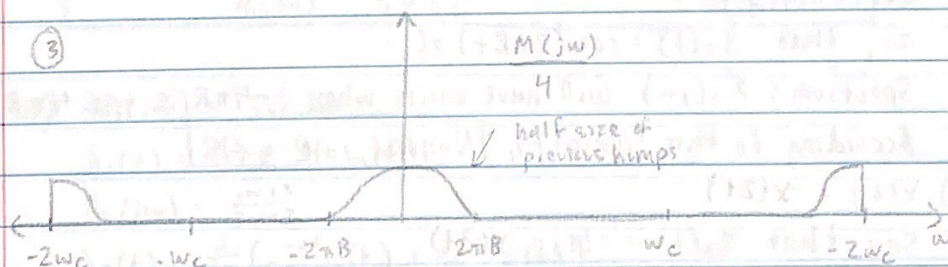 3
M(jω)
4
half size of
previous humps
-2ωc -ωc -2πB 2πB ωc -2ωc ω